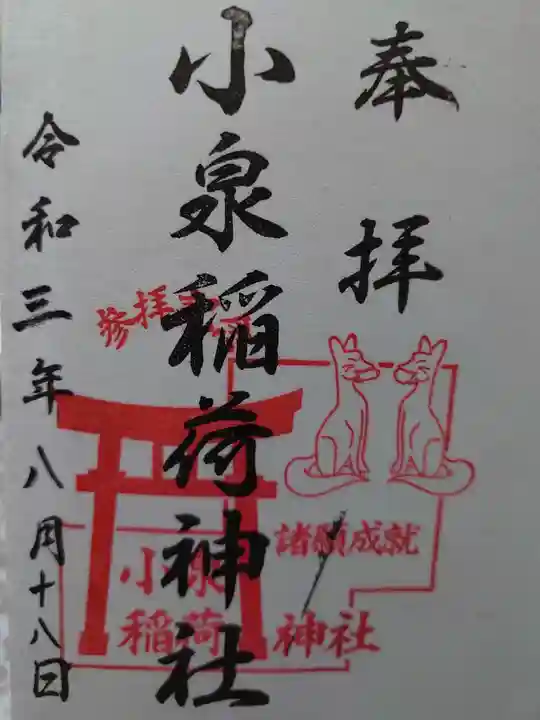 奉拝
小泉稲荷神社
令和三年八月十八日
参拝
諸願成就
小泉
稲荷
神社